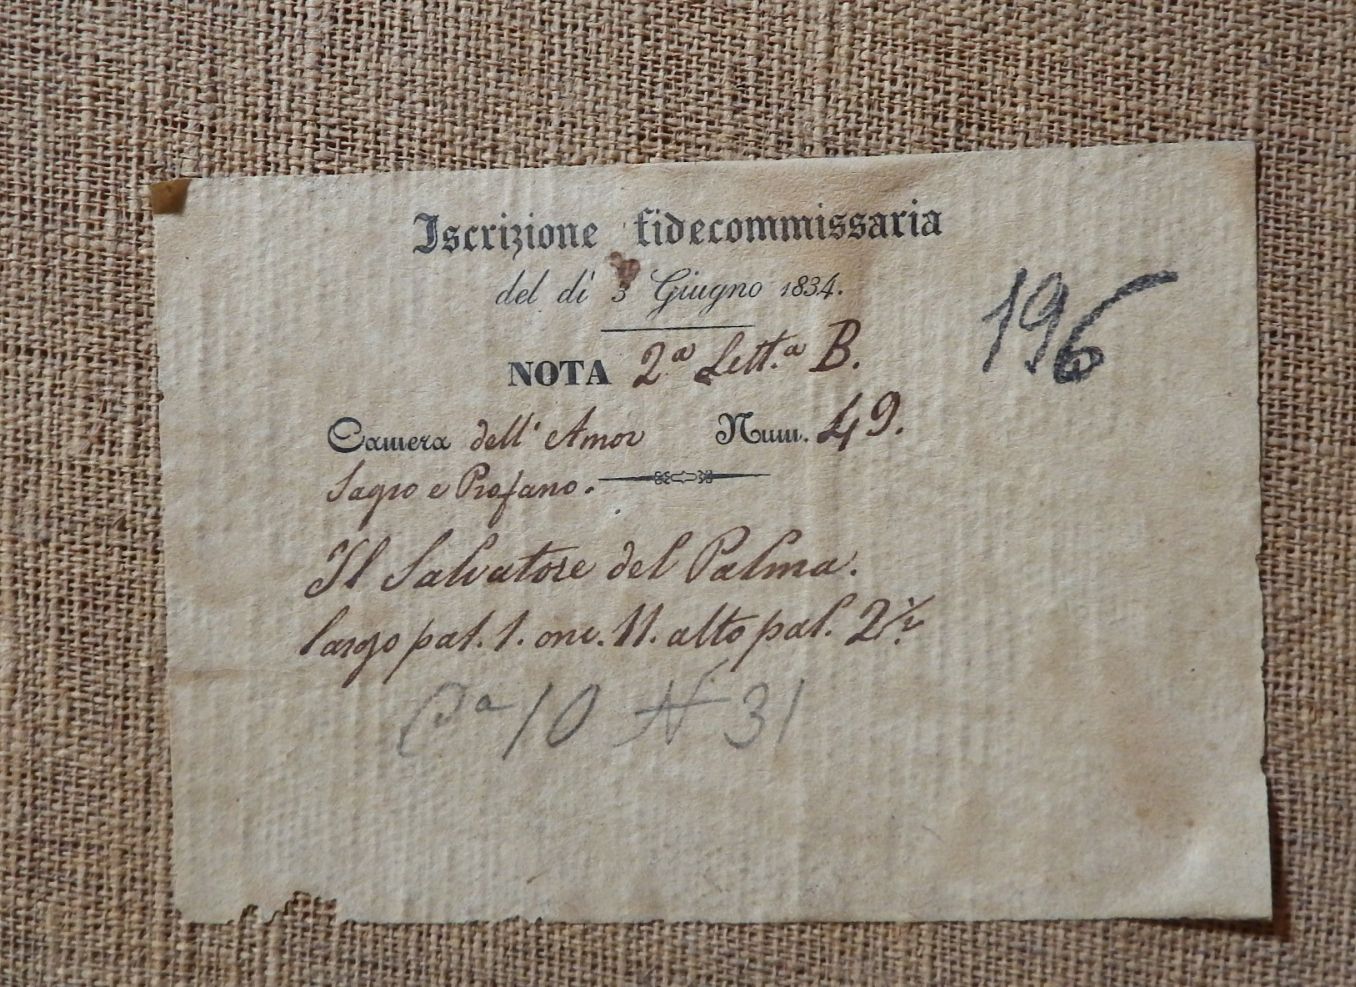 Iscrizione fidecommissaria
del dì 3 Giugno 1834.
196
NOTA 2ª Lett.ª B.
Camera dell' Amor Num. 49.
Sagro e Profano.
Il Salvatore del Palma.
largo pal. 1. onc. 11. alto pal. 2½.
10 N 31